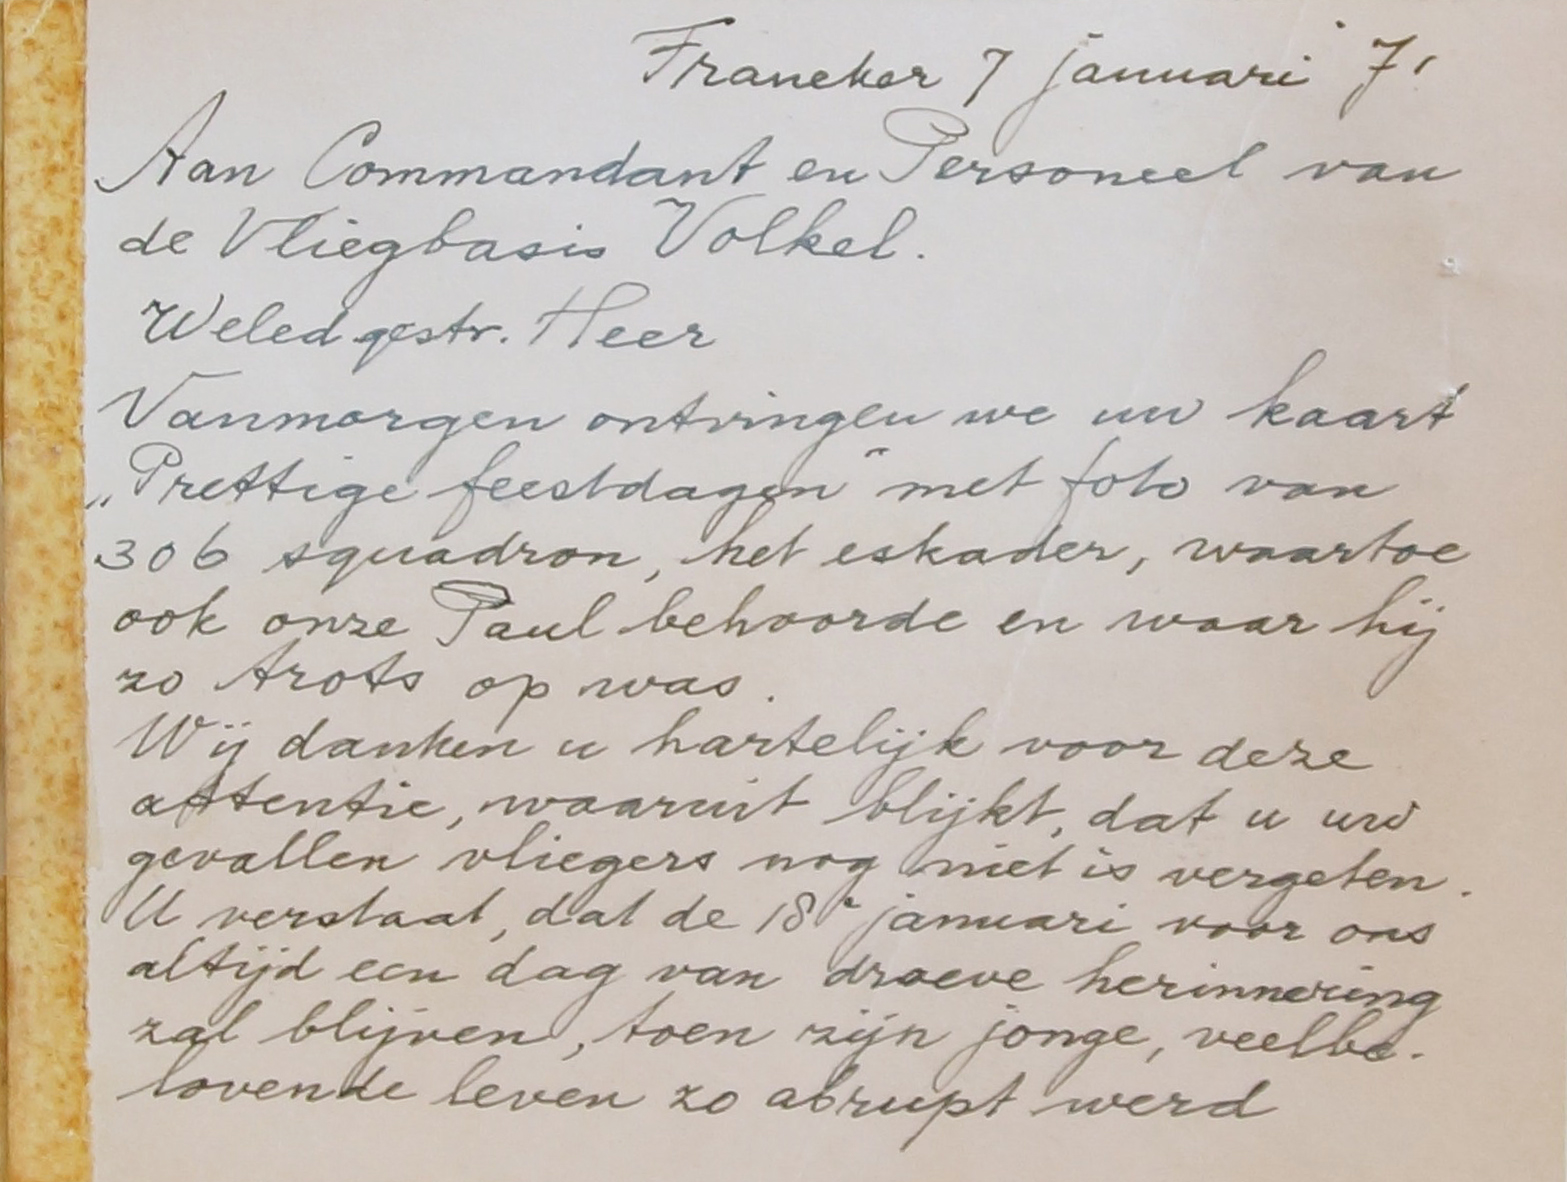 Franeker 7 januari '71
Aan Commandant en Personeel van
de Vliegbasis Volkel.
Weledgestr. Heer
Vanmorgen ontvingen we uw kaart
„Prettige feestdagen" met foto van
306 squadron, het eskader, waartoe
ook onze Paul behoorde en waar hij
zo trots op was.
Wij danken u hartelijk voor deze
attentie, waaruit blijkt, dat u uw
gevallen vliegers nog niet is vergeten.
U verstaat, dat de 18e januari voor ons
altijd een dag van droeve herinnering
zal blijven, toen zijn jonge, veelbe-
lovende leven zo abrupt werd